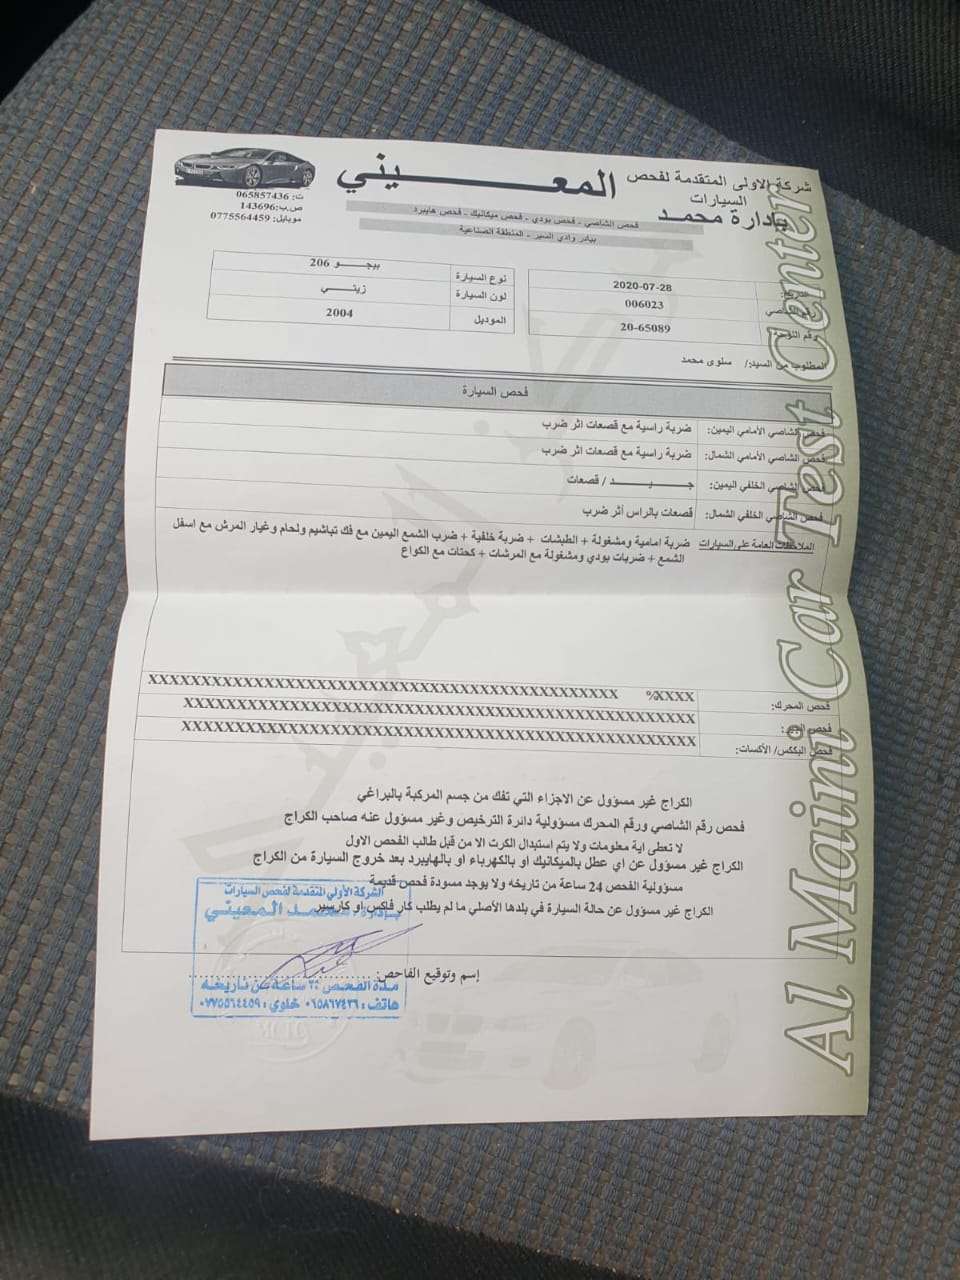 شركة الاولى المتقدمة لفحص السيارات
بإدارة محمد
المعـــيني
ت: 065857436
ص.ب:143696
موبايل: 0775564459
فحص الشاصي - فحص بودي - فحص ميكانيك - فحص هايبرد
بيادر وادي السير - المنطقة الصناعية
2020-07-28
رقم الشاصي 006023
20-65089
نوع السيارة بيجـــو 206
لون السيارة زيتـــي
الموديل 2004
المطلوب من السيد:/ سلوى محمد
فحص السيارة
فحص الشاصي الأمامي اليمين: ضربة راسية مع قصعات اثر ضرب
فحص الشاصي الأمامي الشمال: ضربة راسية مع قصعات اثر ضرب
فحص الشاصي الخلفي اليمين: جـــيـــد / قصعات
فحص الشاصي الخلفي الشمال: قصعات بالراس أثر ضرب
الملاحظات العامة على السيارات ضربة امامية ومشغولة + الطبشات + ضربة خلفية + ضرب الشمع اليمين مع فك تباشيم ولحام وغيار المرش مع اسفل
الشمع + ضربات بودي ومشغولة مع المرشات + كحتات مع الكواع
فحص المحرك: %XXXX XXXXXXXXXXXXXXXXXXXXXXXXXXXXXXXXXXXXXXXXXXX
XXXXXXXXXXXXXXXXXXXXXXXXXXXXXXXXXXXXXXXXXXXXXXX
فحص البكس/ الأكسات: XXXXXXXXXXXXXXXXXXXXXXXXXXXXXXXXXXXXXXXXXXXXXXX
الكراج غير مسؤول عن الاجزاء التي تفك من جسم المركبة بالبراغي
فحص رقم الشاصي ورقم المحرك مسؤولية دائرة الترخيص وغير مسؤول عنه صاحب الكراج
لا تعطى اية معلومات ولا يتم استبدال الكرت الا من قبل طالب الفحص الاول
الكراج غير مسؤول عن اي عطل بالميكانيك او بالكهرباء او بالهايبرد بعد خروج السيارة من الكراج
مسؤولية الفحص 24 ساعة من تاريخه ولا يوجد مسودة فحص قديمة
الكراج غير مسؤول عن حالة السيارة في بلدها الأصلي ما لم يطلب كار فاكس او كارسير
إسم وتوقيع الفاحص:
الشركة الأولى المتقدمة لفحص السيارات
بإدارة: محمد المعيني
مدة الفحص ٢٤ ساعة من تاريخه
هاتف: ٠٦٥٨٦٧٤٣٦ خلوي: ٠٧٧٥٥٦٤٤٥٩
Al Maini Car Test Center